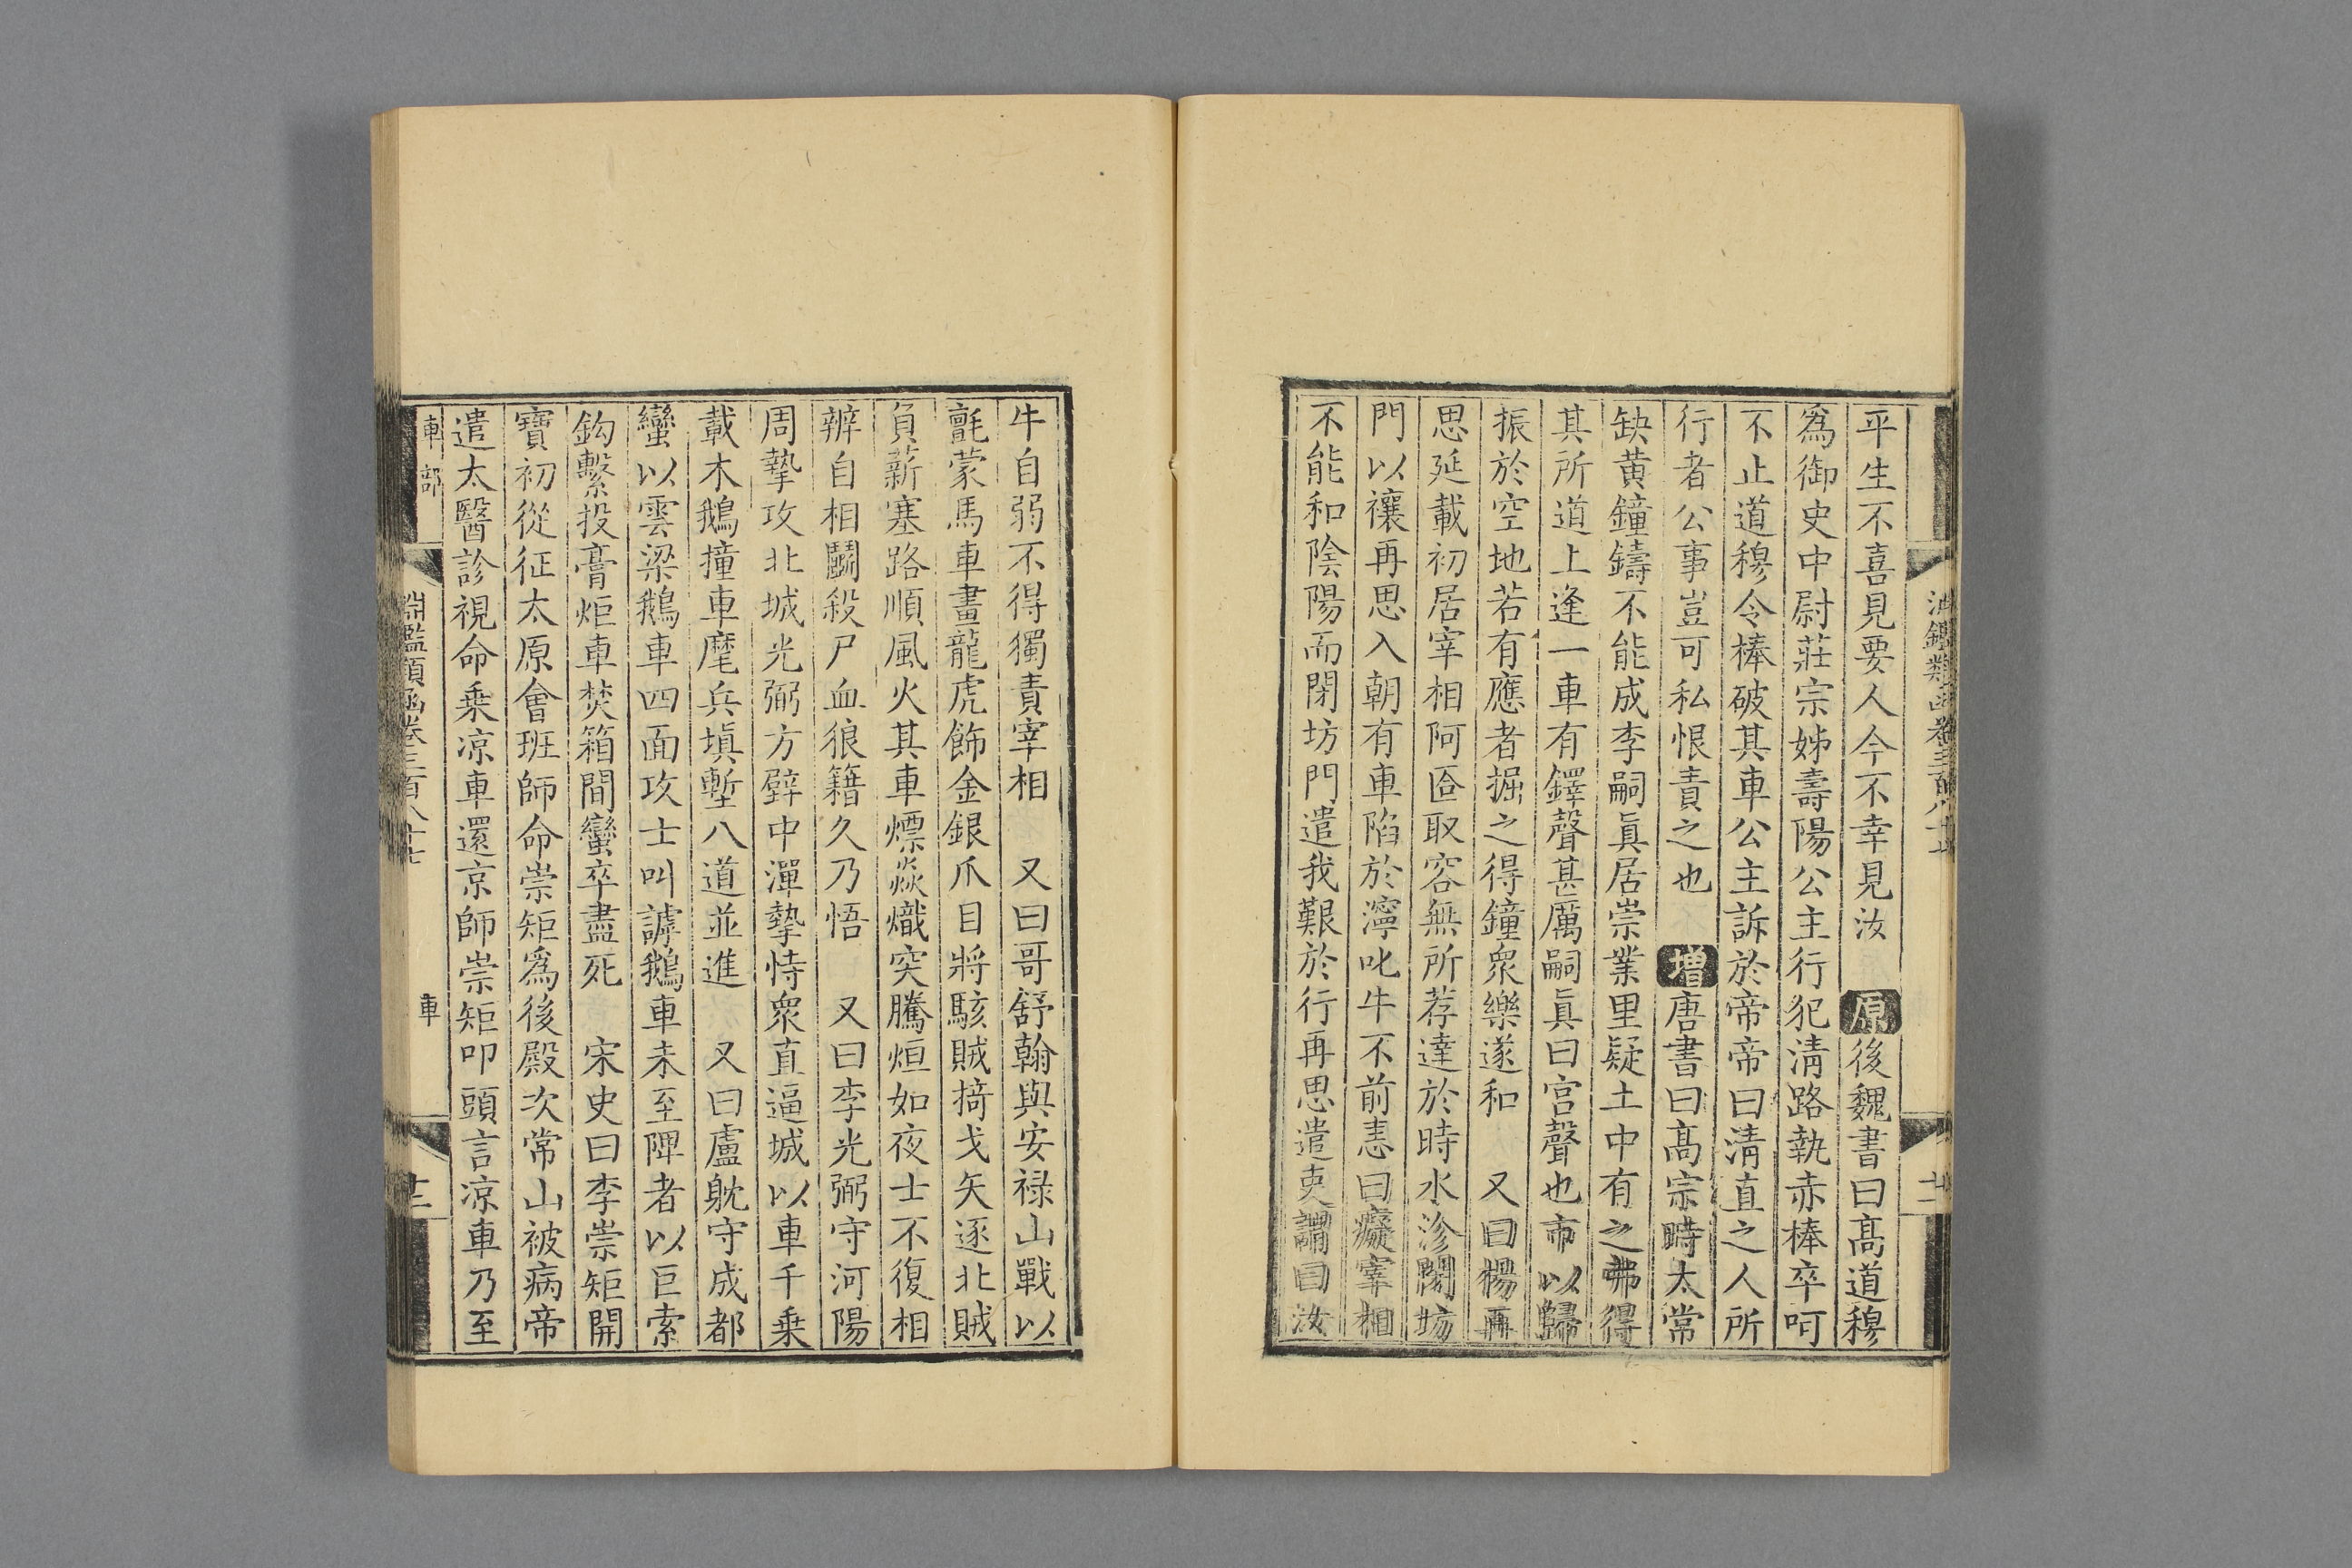 平生不喜見要人今不幸見汝　原後魏書曰髙道穆
爲御史中尉莊宗姊壽陽公主行犯淸路執赤棒卒呵
不止道穆令棒破其車公主訴於帝帝曰淸直之人所
行者公事豈可私恨責之也　增唐書曰髙宗時太常
缺黄鐘鑄不能成李嗣眞居崇業里疑土中有之弗得
其所道上逢一車有鐸聲甚厲嗣眞曰宫聲也市以歸
振於空地若有應者掘之得鐘衆樂遂和　又曰楊再
思延載初居宰相阿匼取容無所荐達於時水沴閉坊
門以禳再思入朝有車陷於濘叱牛不前恚曰癡宰相
不能和陰陽而閉坊門遣我艱於行再思遣吏謂曰汝
牛自弱不得獨責宰相　又曰哥舒翰與安禄山戰以
氈蒙馬車畫龍虎飾金銀爪目將駭賊掎戈矢逐北賊
負薪塞路順風火其車熛焱熾突騰烜如夜士不復相
辨自相鬭殺尸血狼籍久乃悟　又曰李光弼守河陽
周摯攻北城光弼方壁中潬摯恃衆直逼城以車千乗
載木鵝撞車麾兵塡塹八道並進　又曰盧躭守成都
蠻以雲梁鵝車四面攻士叫譹鵝車未至陴者以巨索
鈎繫投膏炬車焚箱間蠻卒盡死　宋史曰李崇矩開
寶初從征太原會班師命崇矩爲後殿次常山被病帝
遣太醫診視命乗凉車還京師崇矩叩頭言凉車乃至
車部　淵鑑類函卷三百八十七　車